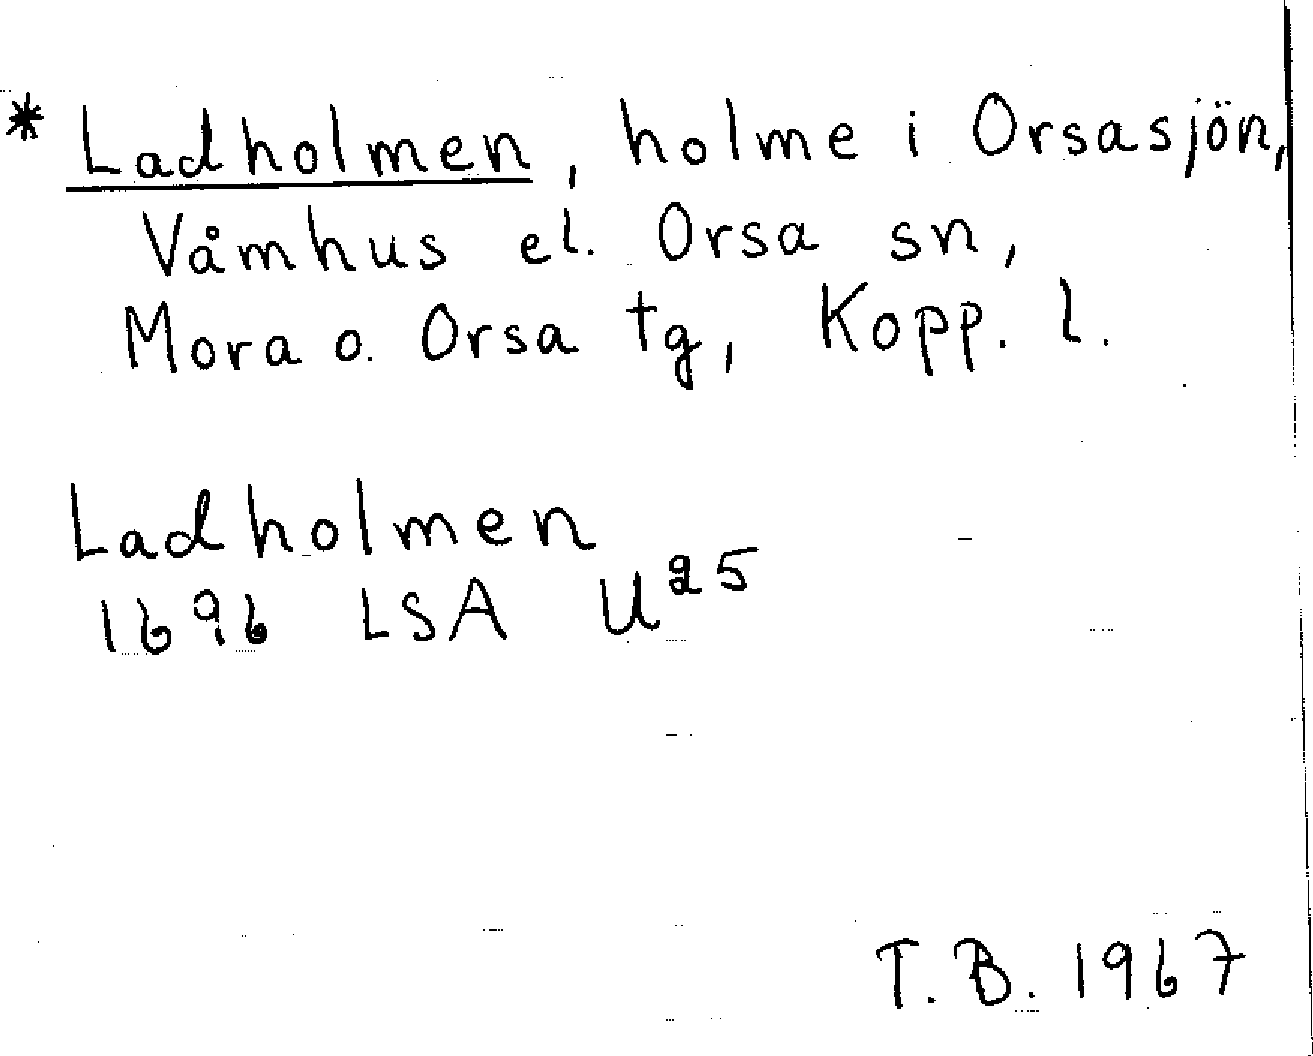 * Ladholmen, holme i Orsasjön,
Våmhus el. Orsa sn,
Mora o. Orsa tg, Kopp. l.
Ladholmen
1696 LSA U25
T. B. 1967